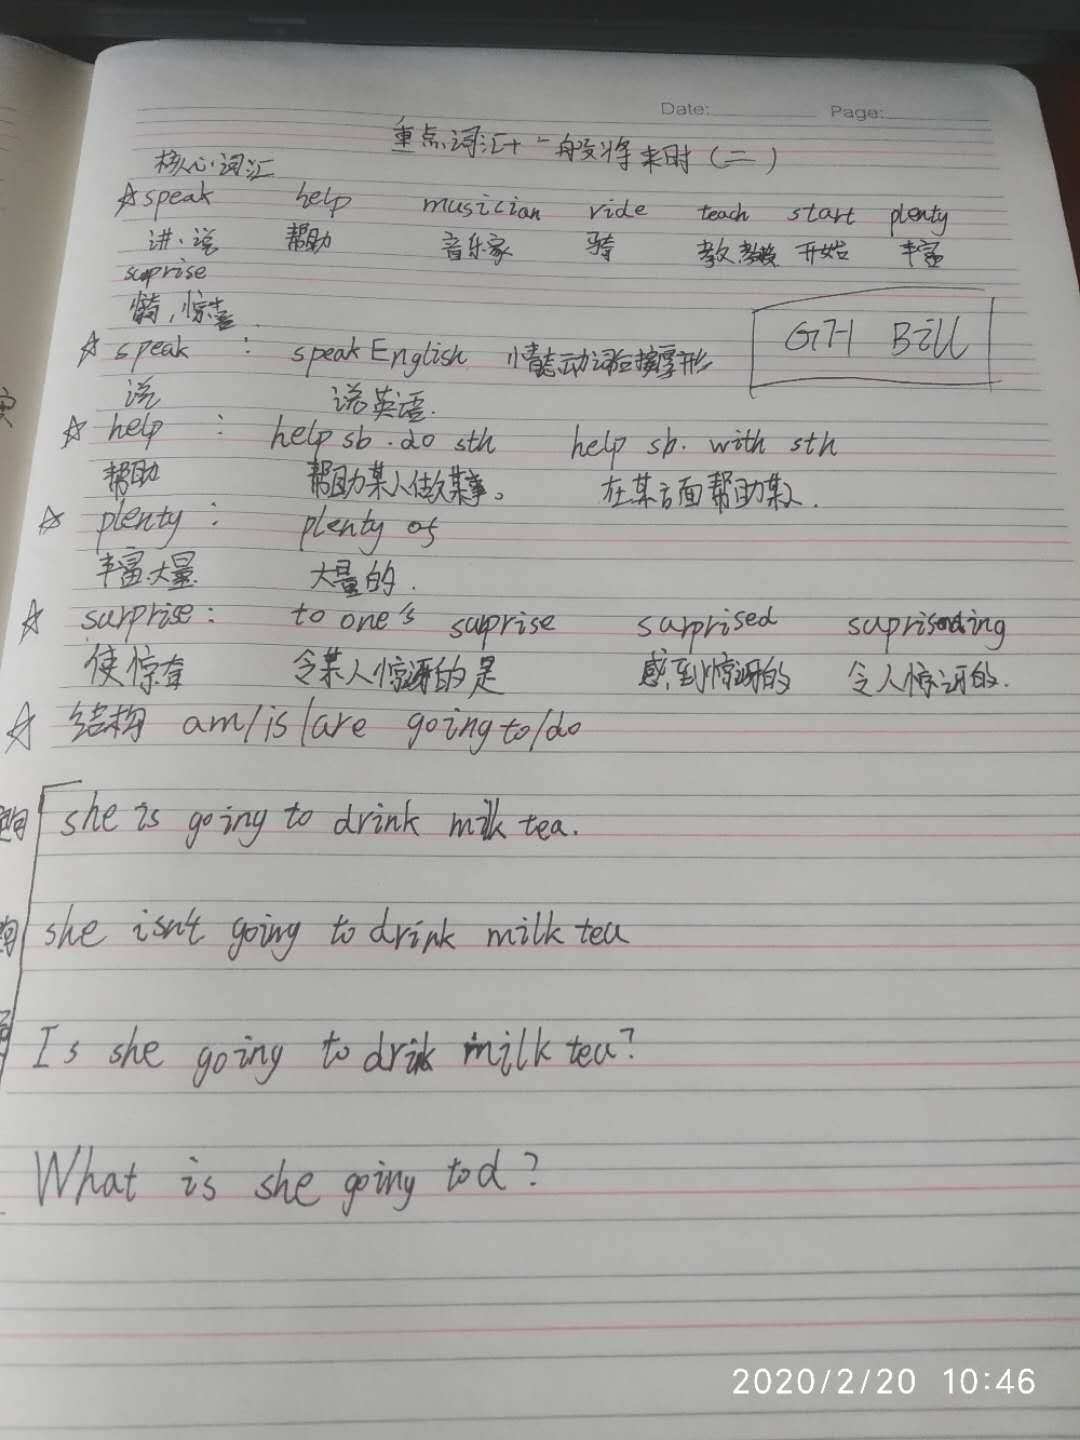 Date: Page:
重点词汇+一般将来时(二)
核心词汇
☆speak help musician ride teach start plenty
讲、说 帮助 音乐家 骑 教,教授 开始 丰富
suprise
惊奇,惊喜
GH Bill
☆ speak : speak English 情态动词后接原形
说 说英语.
☆ help : help sb. do sth help sb. with sth
帮助 帮助某人做某事。 在某方面帮助某人.
☆ plenty : plenty of
丰富.大量. 大量的.
☆ surprise: to one's surprise surprised suprising
使惊奇 令某人惊讶的是 感到惊讶的 令人惊讶的.
☆ 结构 am/is/are going to/do
she is going to drink milk tea.
she isn't going to drink milk tea
Is she going to drink milk tea?
What is she going to d?
2020/2/20 10:46